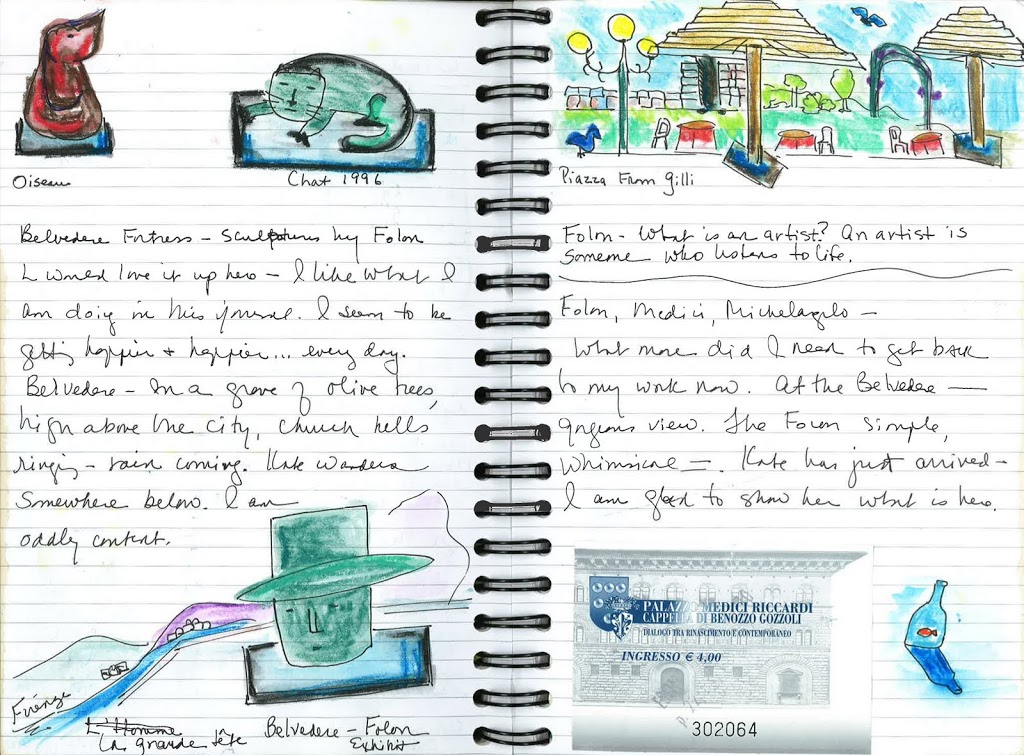 Oiseau
Chat 1996
Belvedere Fortress – Sculptures by Folon
I would love it up here – I like what I
am doing in this journal. I seem to be
getting happier + happier... every day.
Belvedere – In a grove of olive trees,
high above the city, church bells
ringing – rain coming. Kate wanders
Somewhere below. I am
oddly content.
Firenze
L'Homme
La grande tête
Belvedere – Folon
Exhibit
Piazza From Gilli
Folon – What is an artist? An artist is
someone who listens to life.
Folon, Medici, Michelangelo –
What more did I need to get back
to my work now. At the Belvedere —
gorgeous view. The Folon simple,
whimsical –. Kate has just arrived –
I am glad to show her what is here.
PALAZZO MEDICI RICCARDI
CAPPELLA DI BENOZZO GOZZOLI
DIALOGO TRA RINASCIMENTO E CONTEMPORANEO
INGRESSO € 4,00
302064